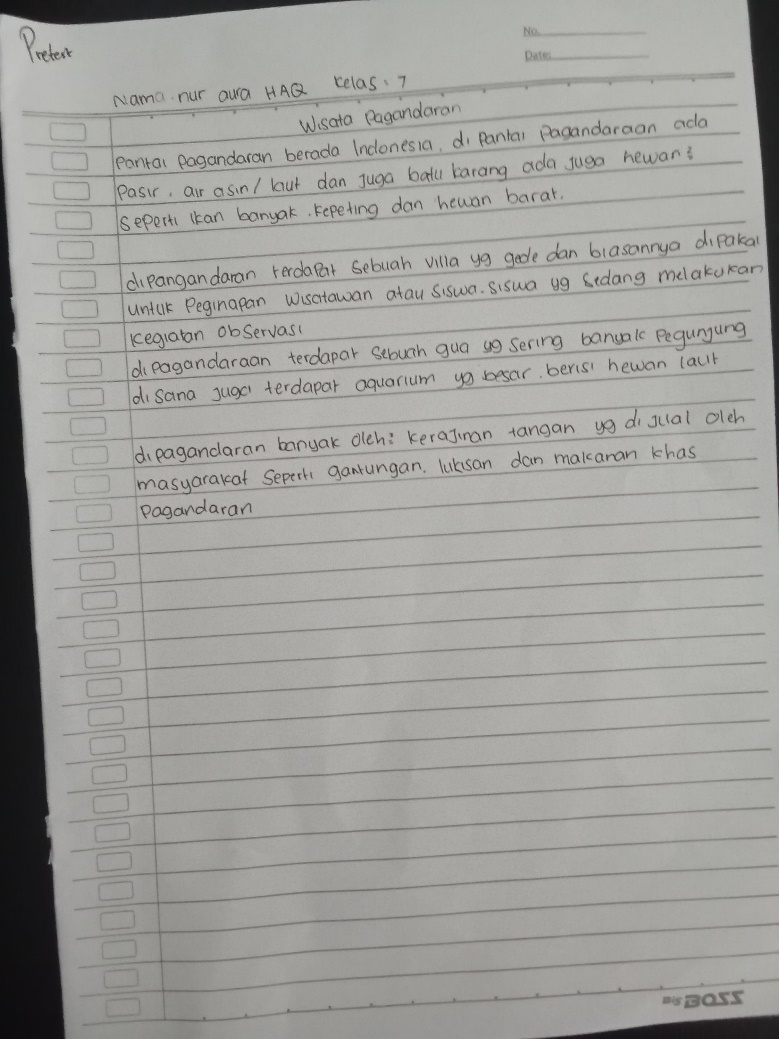 Pretest
No.
Date:
Nama. nur aura HAQ kelas : 7
Wisata Pagandaran
Pantai Pagandaran berada Indonesia, di Pantai Pagandaraan ada
Pasir, air asin / laut dan juga batu karang ada juga hewan:
seperti ikan banyak. kepeting dan hewan barat.
di pangandaran terdapat sebuah villa yg gede dan biasannya di pakai
untuk Peginapan Wisatawan atau siswa-siswa yg sedang melakukan
kegiatan observasi
di pagandaraan terdapat sebuah gua yg sering banyak Pegunjung
di sana juga terdapat aquarium yg besar. berisi hewan laut
di pagandaran banyak oleh: kerajinan tangan yg di jual oleh
masyarakat seperti gantungan, lukisan dan makanan khas
Pagandaran
BIG BOSS